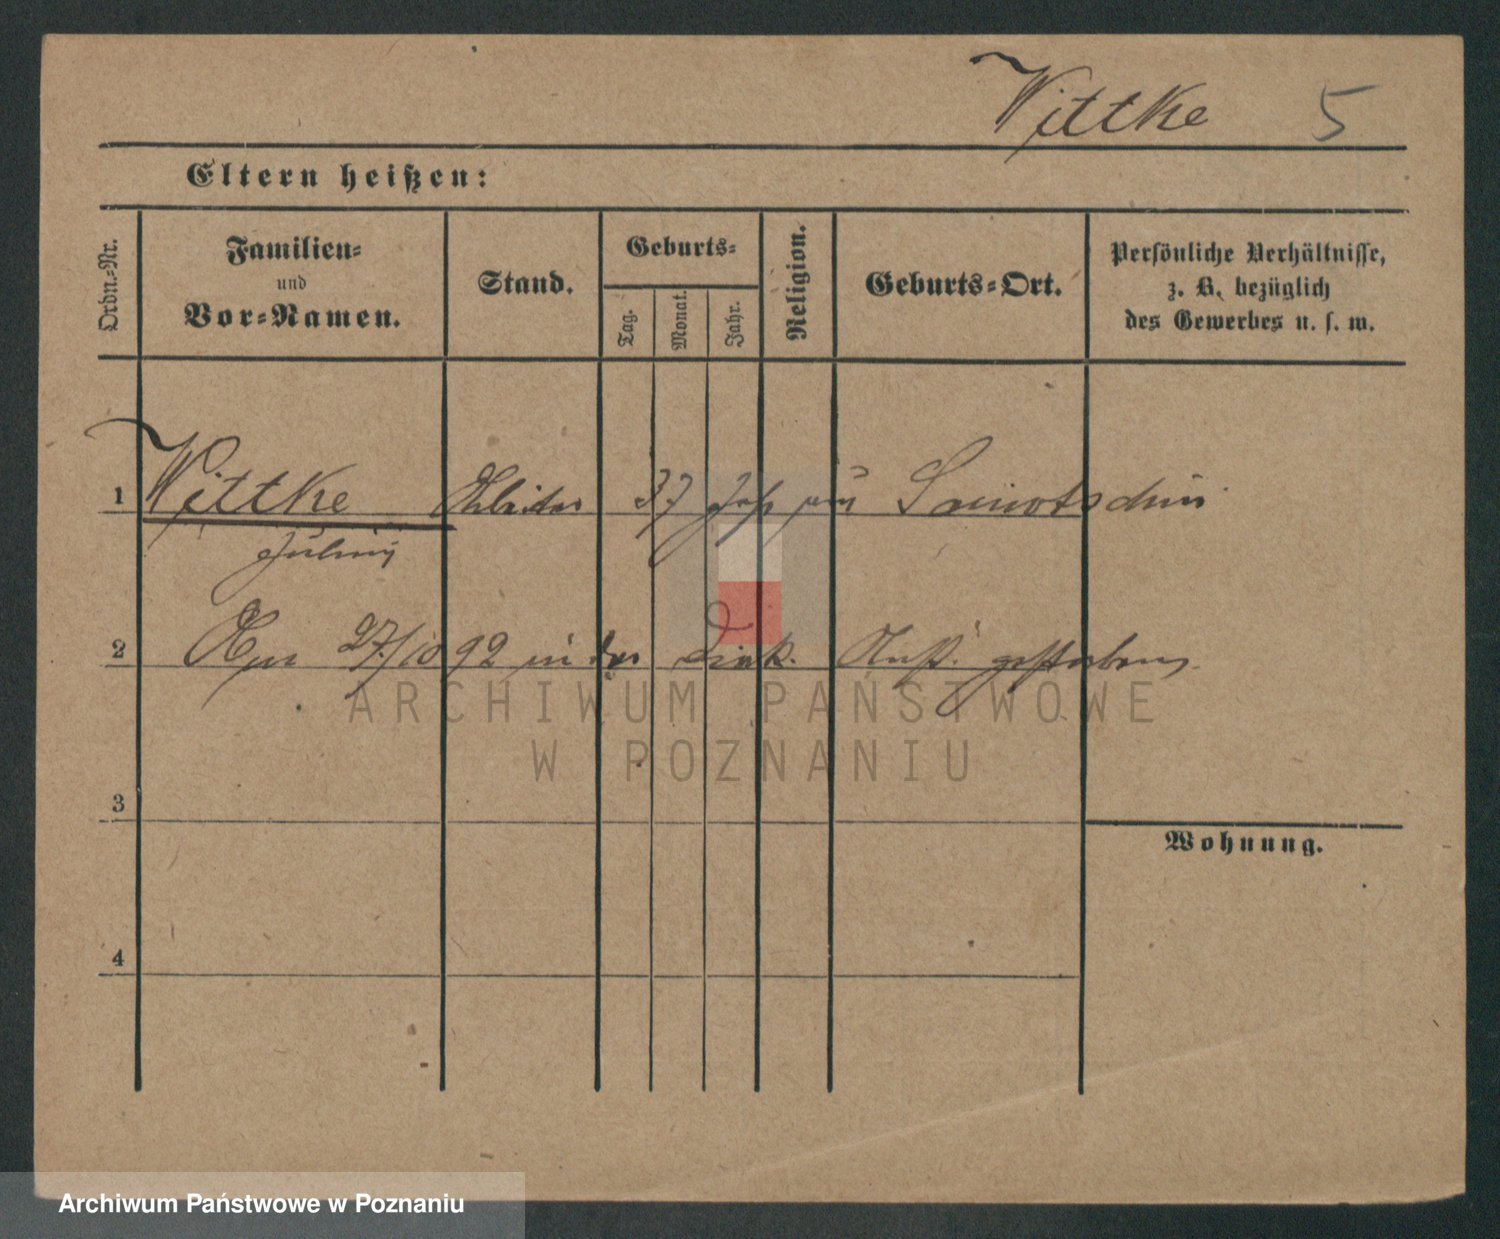 Wittke 5
Eltern heißen:
Ordn.-Nr.
Familien-
und
Vor-Namen.
Stand.
Geburts-
Tag.
Monat.
Jahr.
Religion.
Geburts-Ort.
Persönliche Verhältnisse,
z. B. bezüglich
des Gewerbes u. s. w.
1 Wittke 37 Jahr aus Samotschin
Julius
2 Am 27/10 92 in der Diak. Anst. gestorben.
ARCHIWUM PAŃSTWOWE
W POZNANIU
3
Wohnung.
4
Archiwum Państwowe w Poznaniu